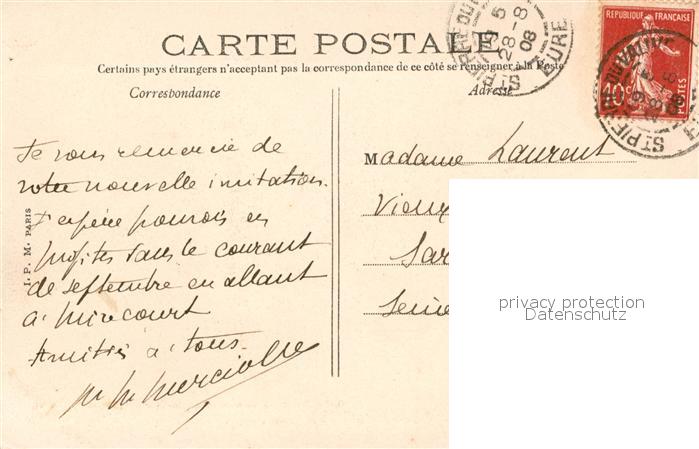 CARTE POSTALE
Certains pays étrangers n'acceptent pas la correspondance de ce côté se renseigner à la Poste
Correspondance
Adresse
REPUBLIQUE FRANÇAISE
10c
POSTES
ST PIERRE DU VAUVRAY
19 5
28-8
08
EURE
Je vous remercie de
votre nouvelle invitation.
J'espère pouvoir en
profiter dans le courant
de septembre en allant
à Mirecourt
Amitiés à tous
J. P. M. PARIS
Madame Laurent
Vieux
Sar
Seine
privacy protection
Datenschutz